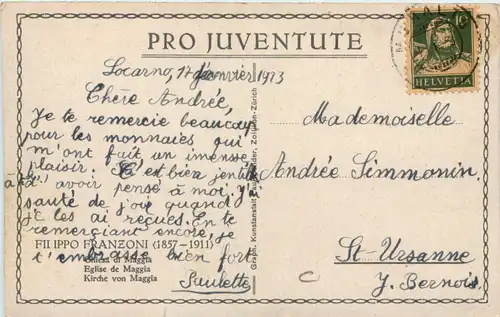 PRO JUVENTUTE
10
HELVETIA
Locarno, 17 janvier 1923
Chère Andrée,
Je te remercie beaucoup
pour les monnaies qui
m'ont fait un imense
plaisir. C'est bien jentil
à toi d'avoir pensé à moi. J'ai
sauté de joie quand
je les ai reçues. En te
remerciant encore, je
FILIPPO FRANZONI (1857-1911)
t'embrasse bien fort
Chiesa di Maggia
Eglise de Maggia
Kirche von Maggia
Paulette
Graph. Kunstanstalt Zollikon-Zürich
Mademoiselle
Andrée Simmonin.
St-Ursanne
J. Bernois.